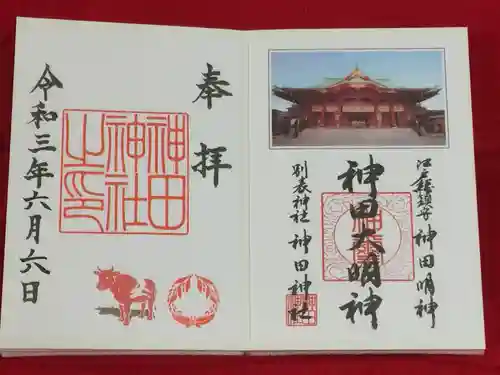 奉拝
神田
神社
之印
令和三年六月六日
江戸総鎮守 神田明神
神田大明神
別表神社 神田神社